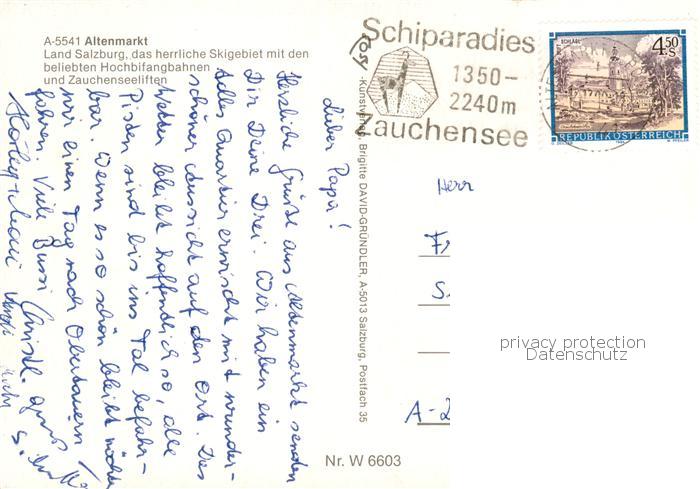 A-5541 Altenmarkt
Land Salzburg, das herrliche Skigebiet mit den
beliebten Hochbifangbahnen
und Zauchenseeliften
Schiparadies
1350–
2240m
Zauchensee
SCHLÄGL
4.50 S
REPUBLIK ÖSTERREICH
Lieber Papa!
Herzliche Grüße aus Altenmarkt senden
Dir Deine Drei. Wir haben ein
tolles Quartier erwischt mit wunder-
schöner Aussicht auf den Ort. Das
Wetter bleibt hoffentlich so, alle
Pisten sind bis ins Tal befahr-
bar. Wenn es so schön bleibt möchten
wir einen Tag nach Obertauern
fahren. Viele Bussi
-Kunstverlag, Brigitte DAVID-GRÜNDLER, A-5013 Salzburg, Postfach 35
Herr
A-2
privacy protection
Datenschutz
Nr. W 6603